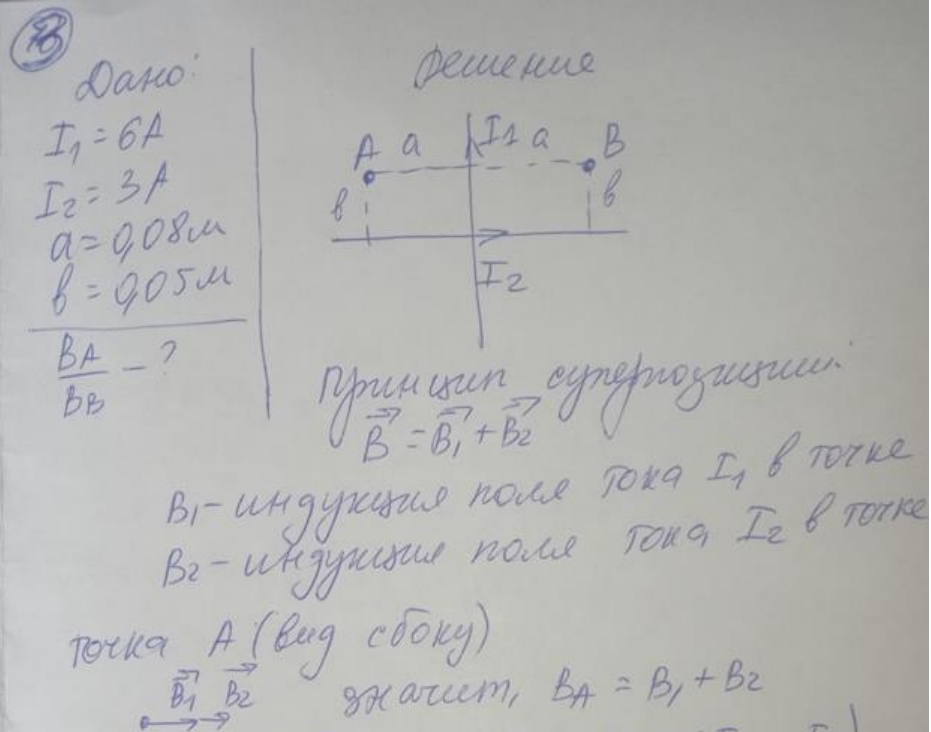 Дано:
I₁ = 6А
I₂ = 3А
a = 0,08м
в = 0,05м
BA/BB - ?
Решение
A a I1 a B
в в
I2
Принцип суперпозиции:
B = B₁ + B₂
B₁ - индукция поля тока I₁ в точке
B₂ - индукция поля тока I₂ в точке
точка А (вид сбоку)
B₁ B₂ значит, BA = B₁ + B₂